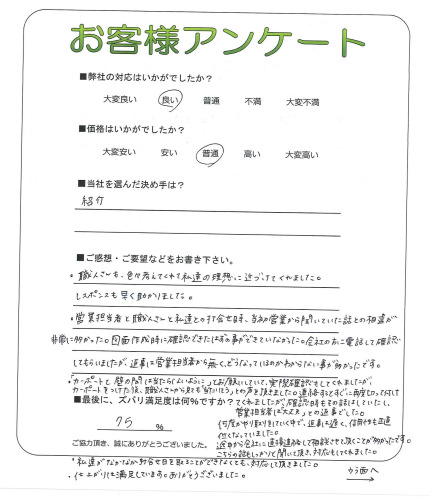 お客様アンケート
■弊社の対応はいかがでしたか？
大変良い 良い 普通 不満 大変不満
■価格はいかがでしたか？
大変安い 安い 普通 高い 大変高い
■当社を選んだ決め手は？
紹介
■ご感想・ご要望などをお書き下さい。
・職人さんも、色々考えてくれて私達の理想に近づけてくれました。
レスポンスも早く助かりました。
・営業担当者と職人さんと私達との打合せ時、当初営業から聞いていた話との相違が
非常に多かった。図面作成時に確認できたはずの事ができていなかった。会社の方に電話して確認
してもらいましたが、返事は営業担当者から無く、どうなっているのかわからない事が多かったです。
・カーポートと壁の間は当たらないように、とお願いしていて、実際確認もしてくれましたが、
カーポートをつけた後、職人さんから
■最後に、ズバリ満足度は何％ですか？
営業担当者は大丈夫との返事でした。
75 %
何度かやり取りをしていく中で、返事は遅く、信用も正直
付くなっていました。
ご協力頂き、誠にありがとうございました。
途中から会社に直接連絡をして相談させて頂くことが多かったです。
こちらの話もしっかりと聞いて頂き、対応もしてくれました。
・私達がなかなか打合せ日を取ることができなくても、対応して頂きました。
・仕上がりには満足しています。ありがとうございました。
うら面へ